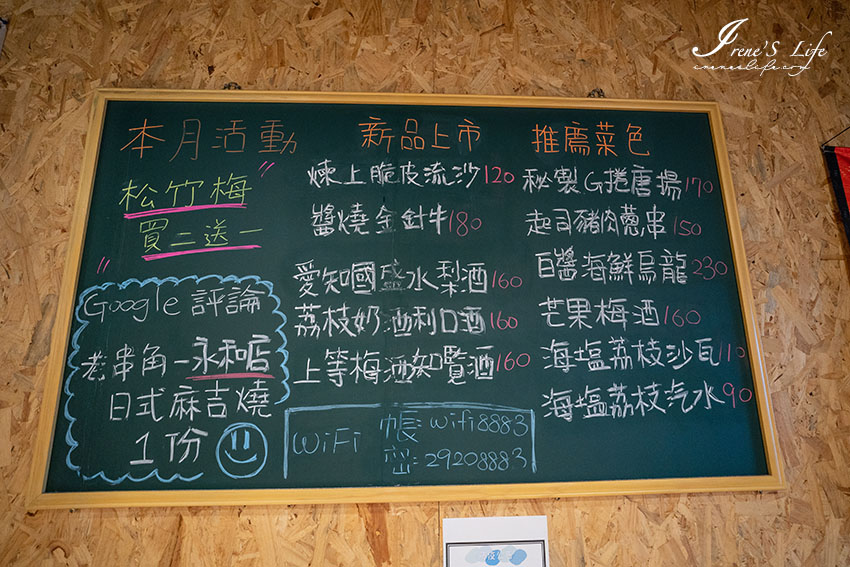 Irene's Life
ireneslife.com
本月活動
松竹梅
買二送一
Google 評論
老串角-永和店
日式麻吉燒
1份
新品上市
煉上脆皮流沙 120
醬燒金針牛 180
愛知國盛水梨酒 160
荔枝奶酒利口酒 160
上等梅酒知覧酒 160
WiFi 帳: wifi8883
密: 29208883
推薦菜色
秘製G捲唐揚 170
起司豬肉蔥串 150
白醬海鮮烏龍 230
芒果梅酒 160
海塩荔枝沙瓦 110
海塩荔枝汽水 90